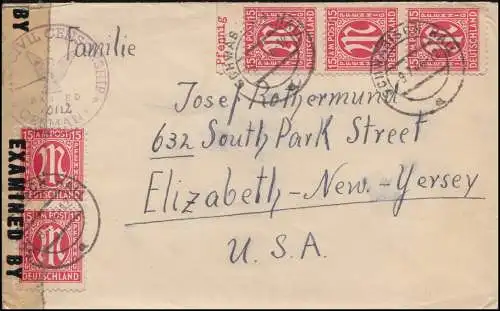 BY
CIVIL CENSORSHIP
PASSED
GERMANY
EXAMINED BY
Familie
Pfennig
15 AM POST 15
PFENNIG
DEUTSCHLAND
15 AM POST 15
PFENNIG
DEUTSCHLAND
15 AM POST 15
PFENNIG
DEUTSCHLAND
SCHWÄB
Josef Rothermund
632 South Park Street
Elizabeth-New-Yersey
U.S.A.
15 AM POST 15
DEUTSCHLAND
15 AM POST 15
DEUTSCHLAND